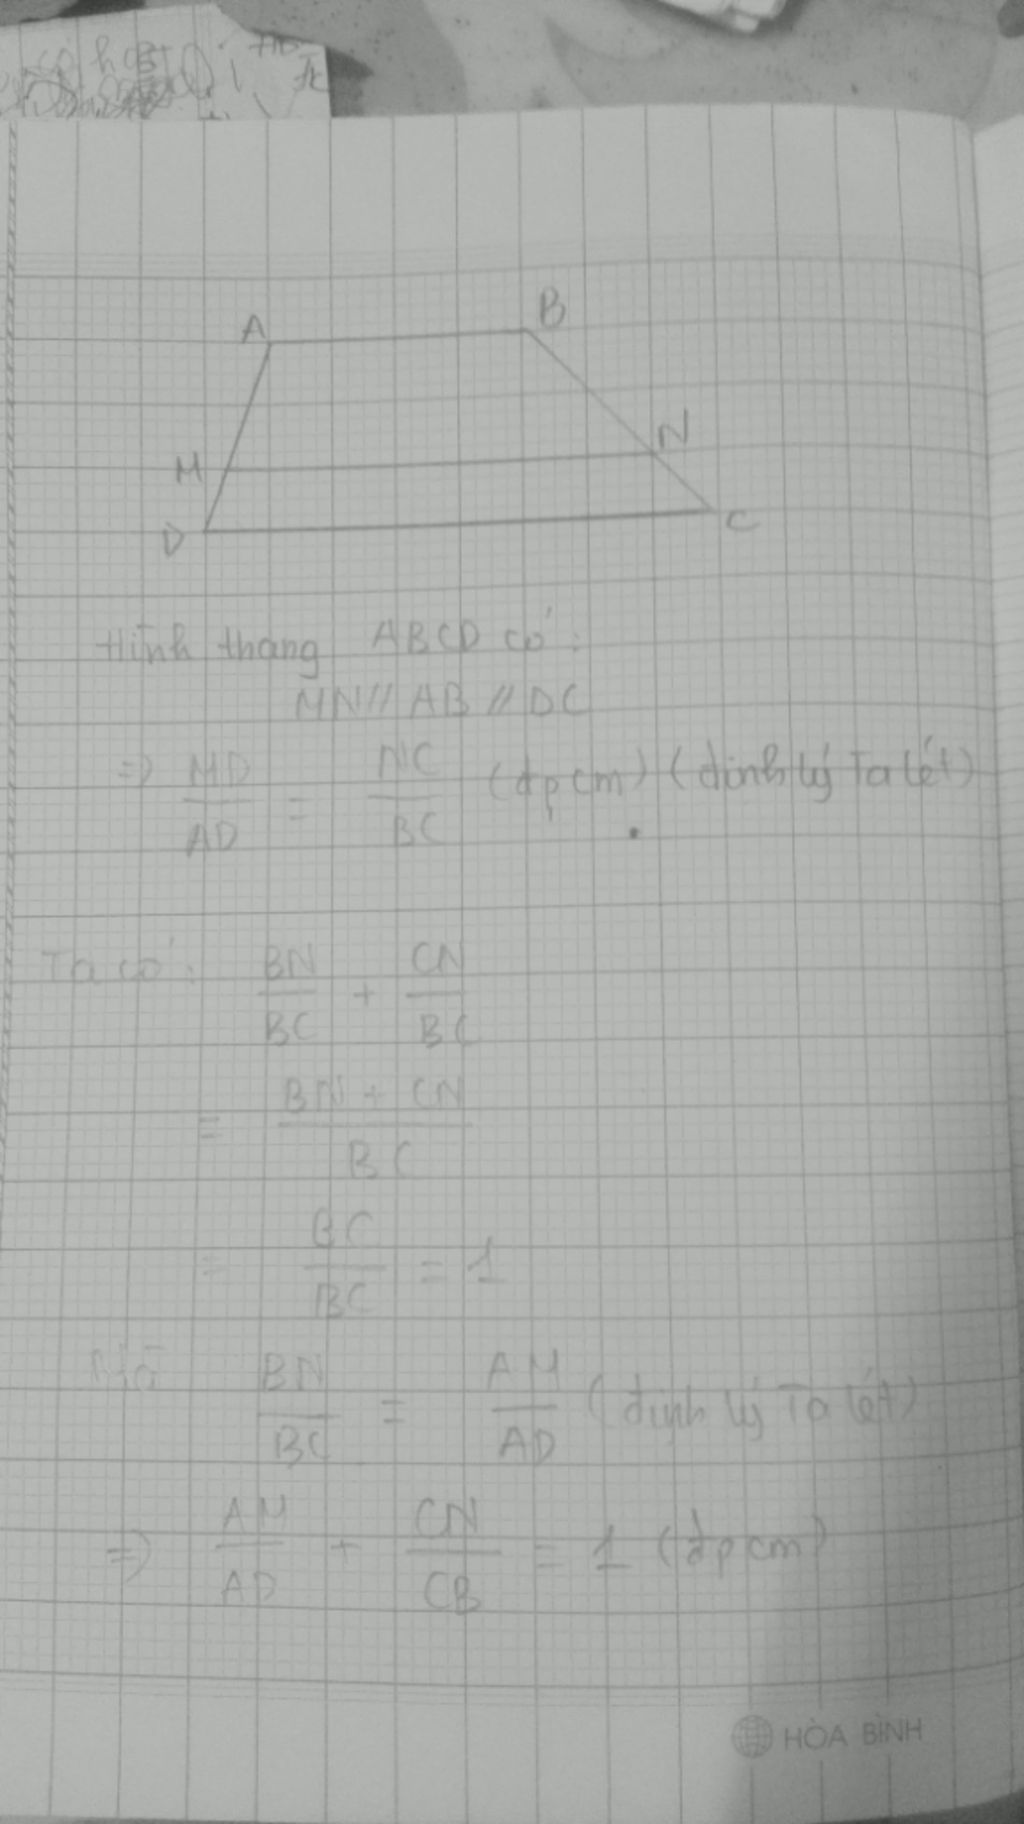 A
B
M
N
D
C
Hình thang ABCD có:
MN // AB // DC
=> MD/AD = NC/BC (đpcm) (định lý Ta lét)
Ta có: BN/BC + CN/BC
= BN + CN/BC
= BC/BC = 1
Mà BN/BC = AM/AD (định lý Ta lét)
=> AM/AD + CN/CB = 1 (đpcm)
HÒA BÌNH